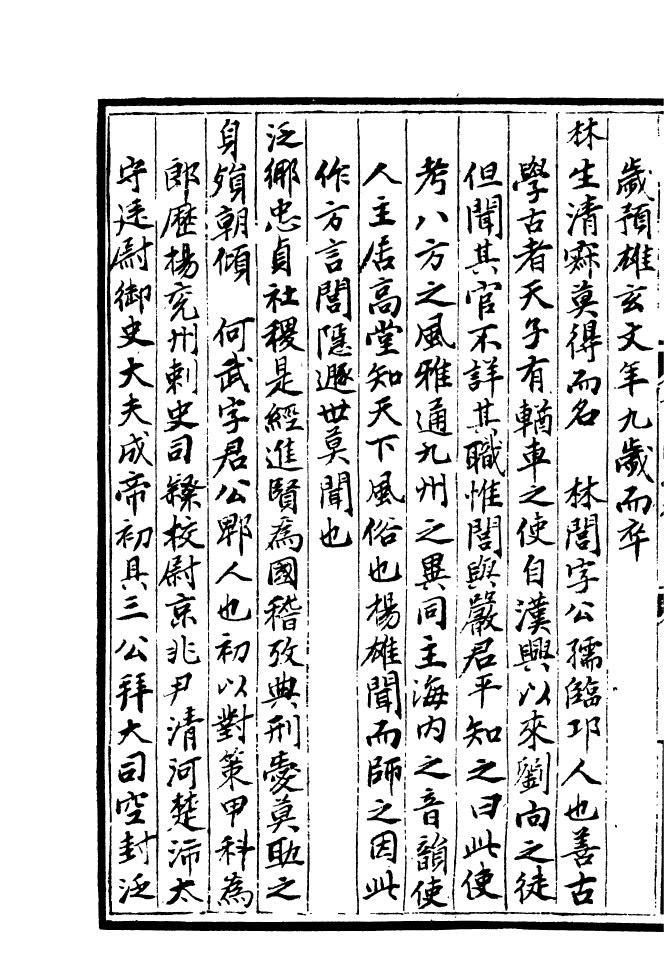 歲預雄玄文年九歲而卒
林生清寂莫得而名　林閭字公孺臨邛人也善古
學古者天子有輶車之使自漢興以來劉向之徒
但聞其官不詳其職惟閭與嚴君平知之曰此使
考八方之風雅通九州之異同主海內之音韻使
人主居高堂知天下風俗也楊雄聞而師之因此
作方言閭隱遯世莫聞也
泛鄉忠貞社稷是經進賢為國稽攷典刑憂莫助之
身殞朝傾　何武字君公郫人也初以對策甲科為
郎歷楊兖州刺史司隸校尉京兆尹清河楚沛太
守廷尉御史大夫成帝初具三公拜大司空封泛